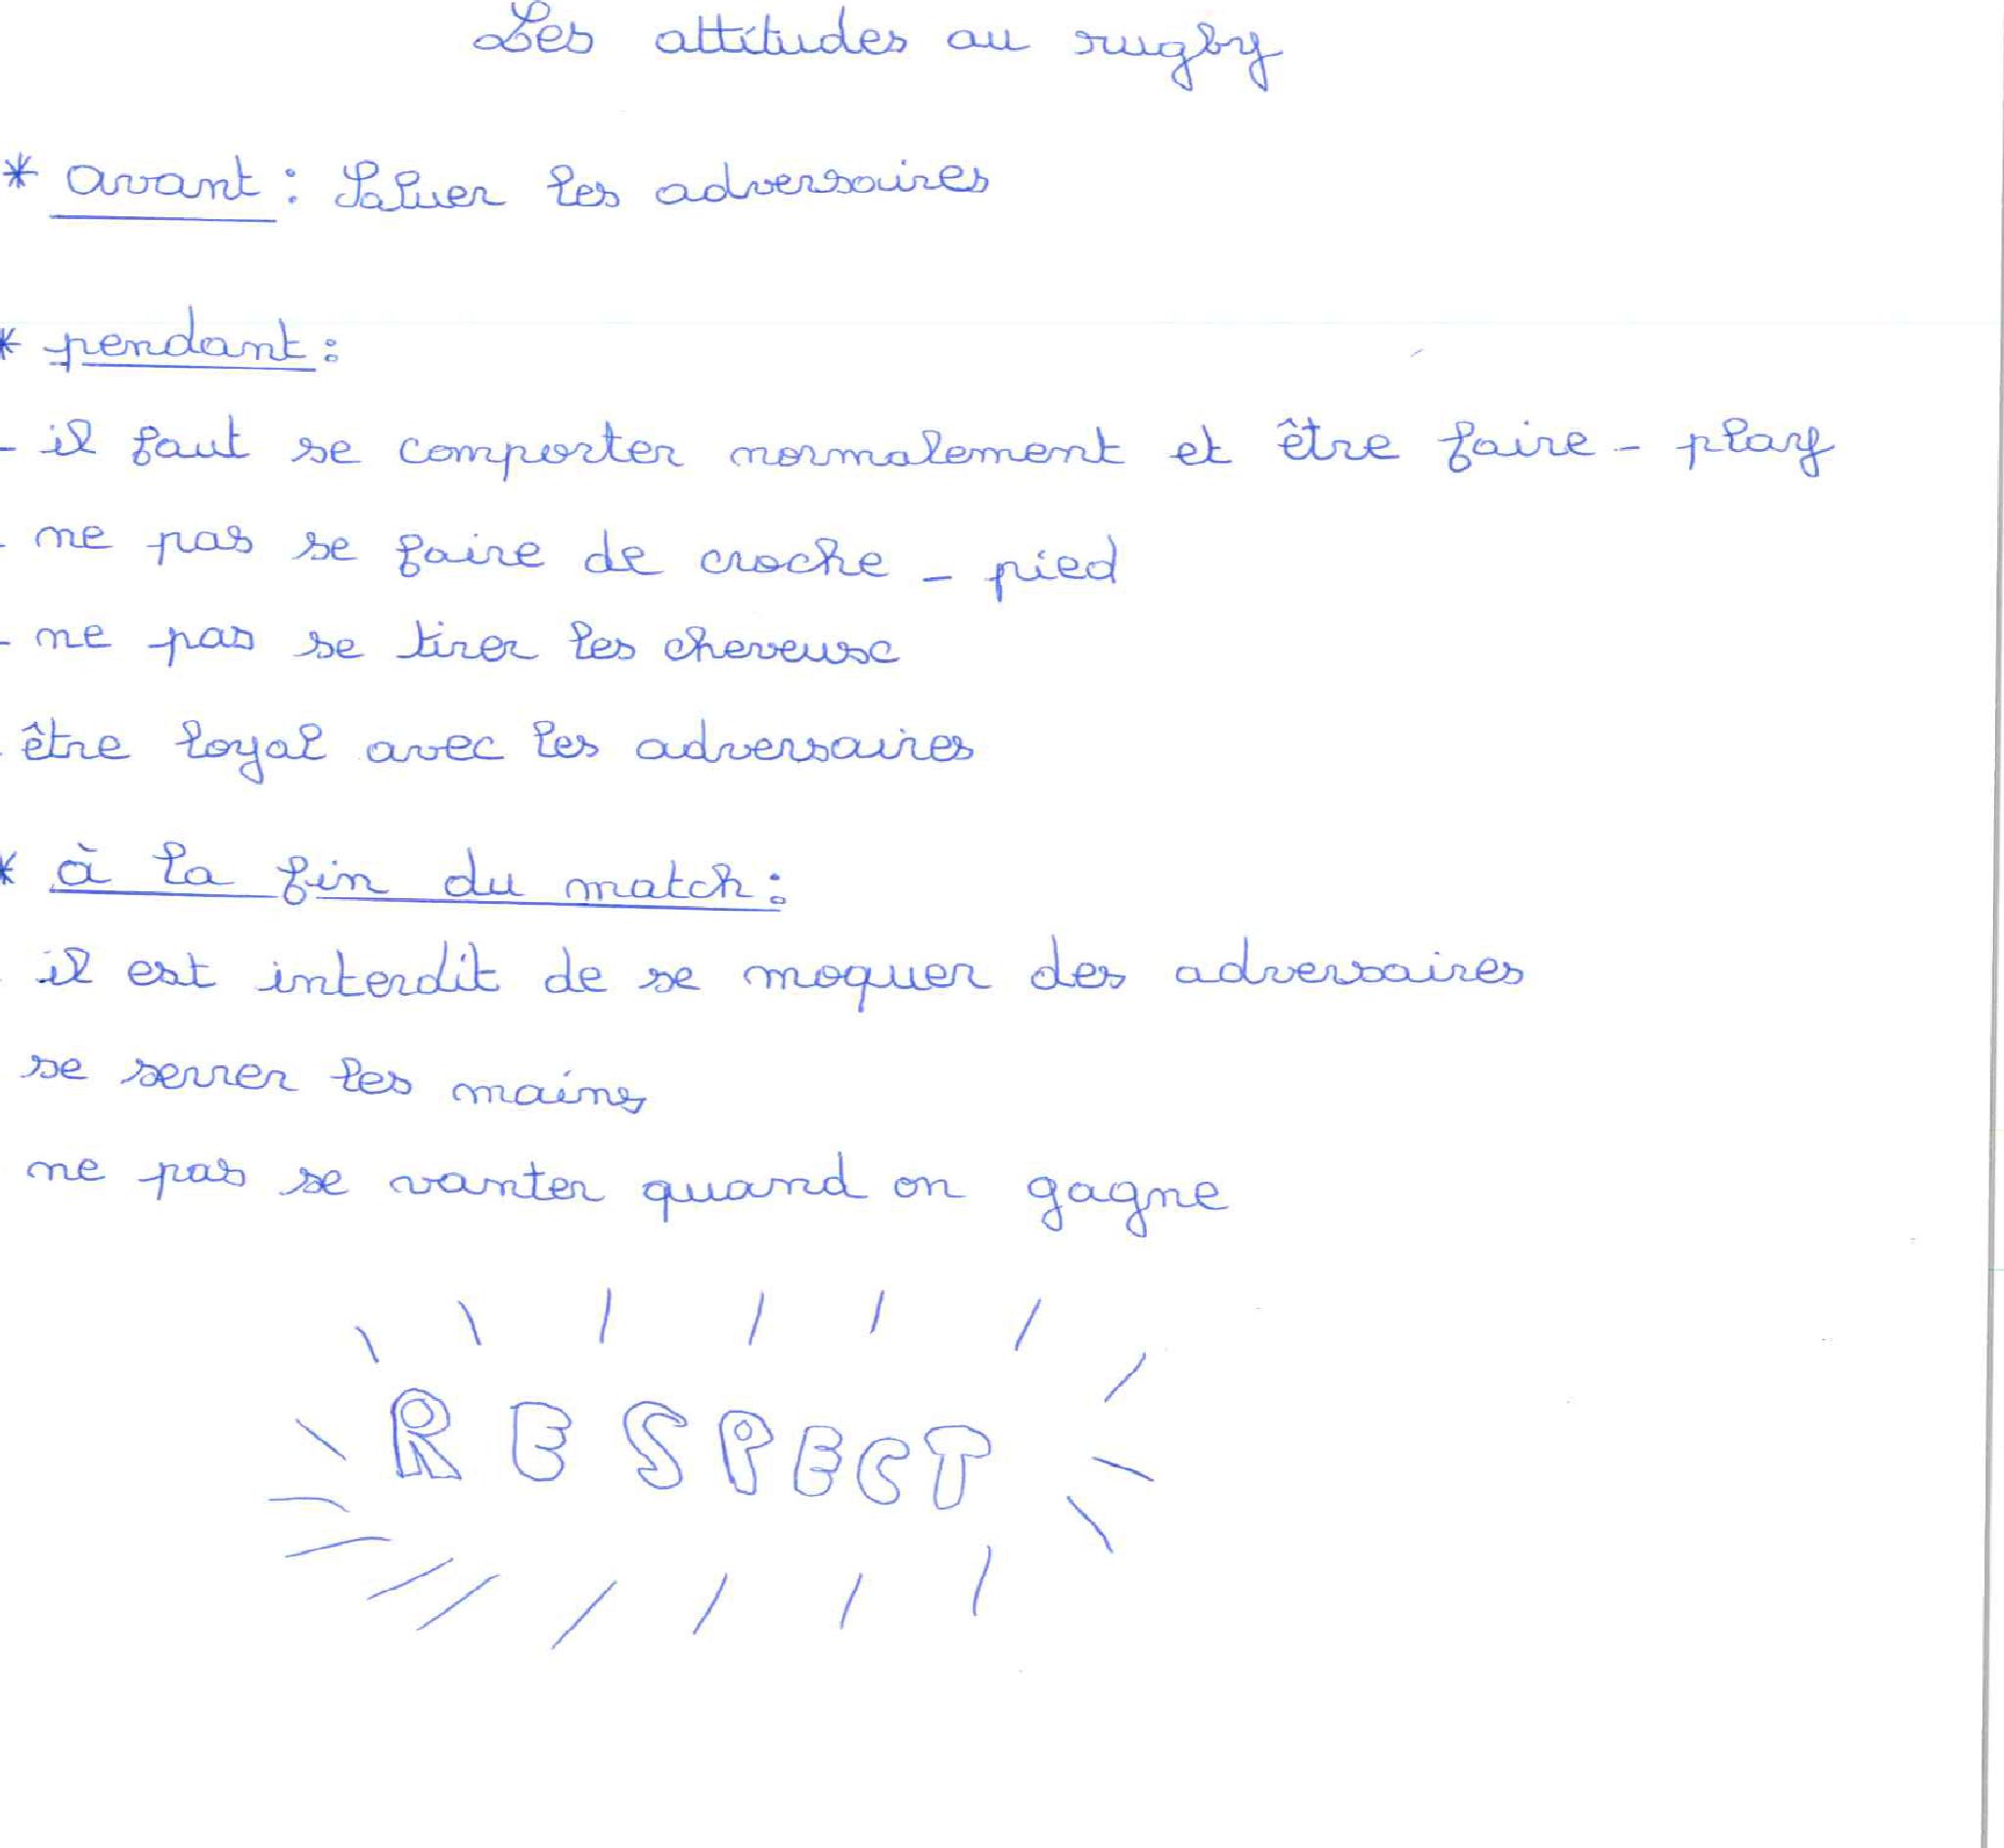 Les attitudes au rugby
* avant : Saluer les adversaires
* pendant :
- il faut se comporter normalement et être faire - play
- ne pas se faire de croche - pied
- ne pas se tirer les cheveux
- être loyal avec les adversaires
* à la fin du match :
- il est interdit de se moquer des adversaires
se serrer les mains
ne pas se vanter quand on gagne
RESPECT